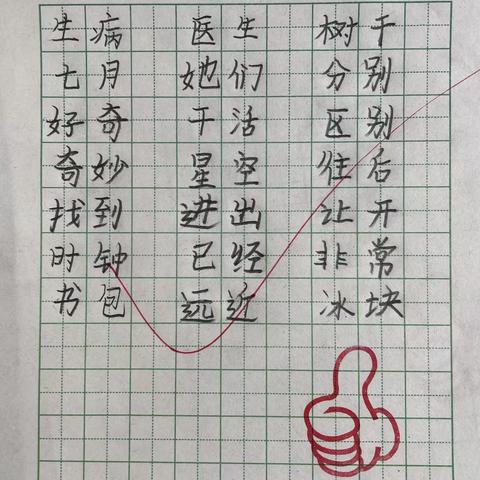 生病 医生 树干
七月 她们 分别
好奇 干活 区别
奇妙 星空 往后
找到 进出 让开
时钟 已经 非常
书包 远近 冰块